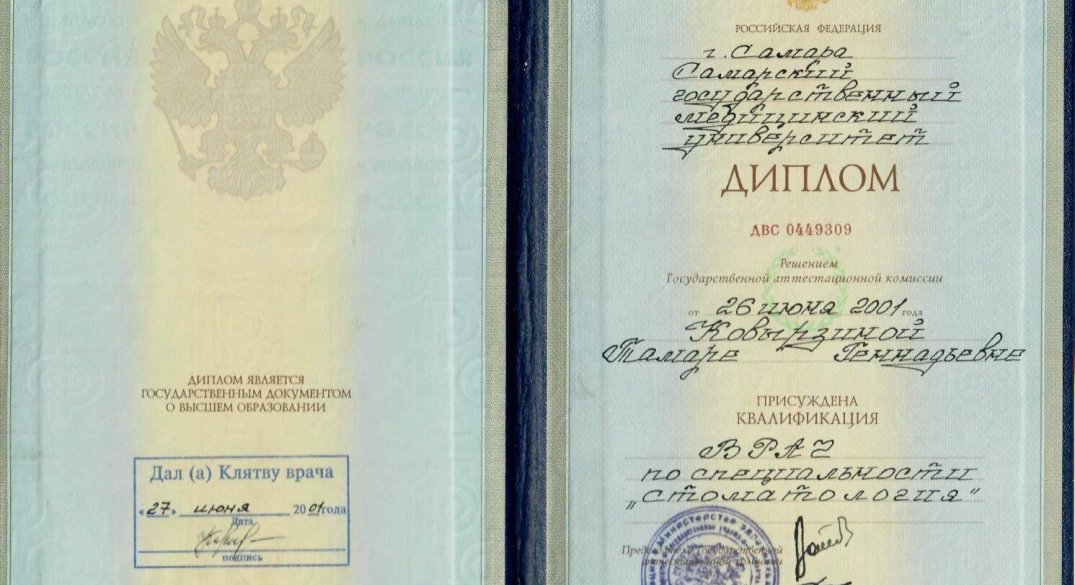 ДИПЛОМ ЯВЛЯЕТСЯ
ГОСУДАРСТВЕННЫМ ДОКУМЕНТОМ
О ВЫСШЕМ ОБРАЗОВАНИИ
Дал (а) Клятву врача
«27» июня 2001 года
Дата
подпись
РОССИЙСКАЯ ФЕДЕРАЦИЯ
г. Самара
Самарский
государственный
медицинский
университет
ДИПЛОМ
ДВС 0449309
Решением
Государственной аттестационной комиссии
от 26 июня 2001 года
Ковырзиной
Тамаре Геннадьевне
ПРИСУЖДЕНА
КВАЛИФИКАЦИЯ
ВРАЧ
по специальности
„стоматология"
Председатель Государственной
аттестационной комиссии